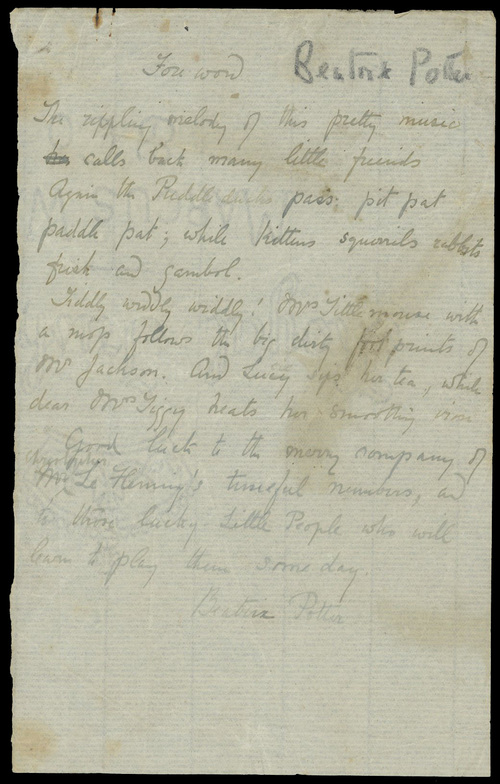 Foreword Beatrix Potter
The rippling melody of this pretty music
calls back many little friends
Again the Puddleducks pass; pit pat
paddle pat; while kittens squirrels rabbits
frisk and gambol.
Tiddly widdly widdly! Mrs Tittlemouse with
a mop follows the big dirty foot prints of
Mr Jackson. And Lucy sips her tea, while
dear Mrs Tiggy heats her smoothing iron
Good luck to the merry company of
Christopher
Mr Le Fleming's tuneful numbers, and
to those lucky Little People who will
learn to play them some day.
Beatrix Potter